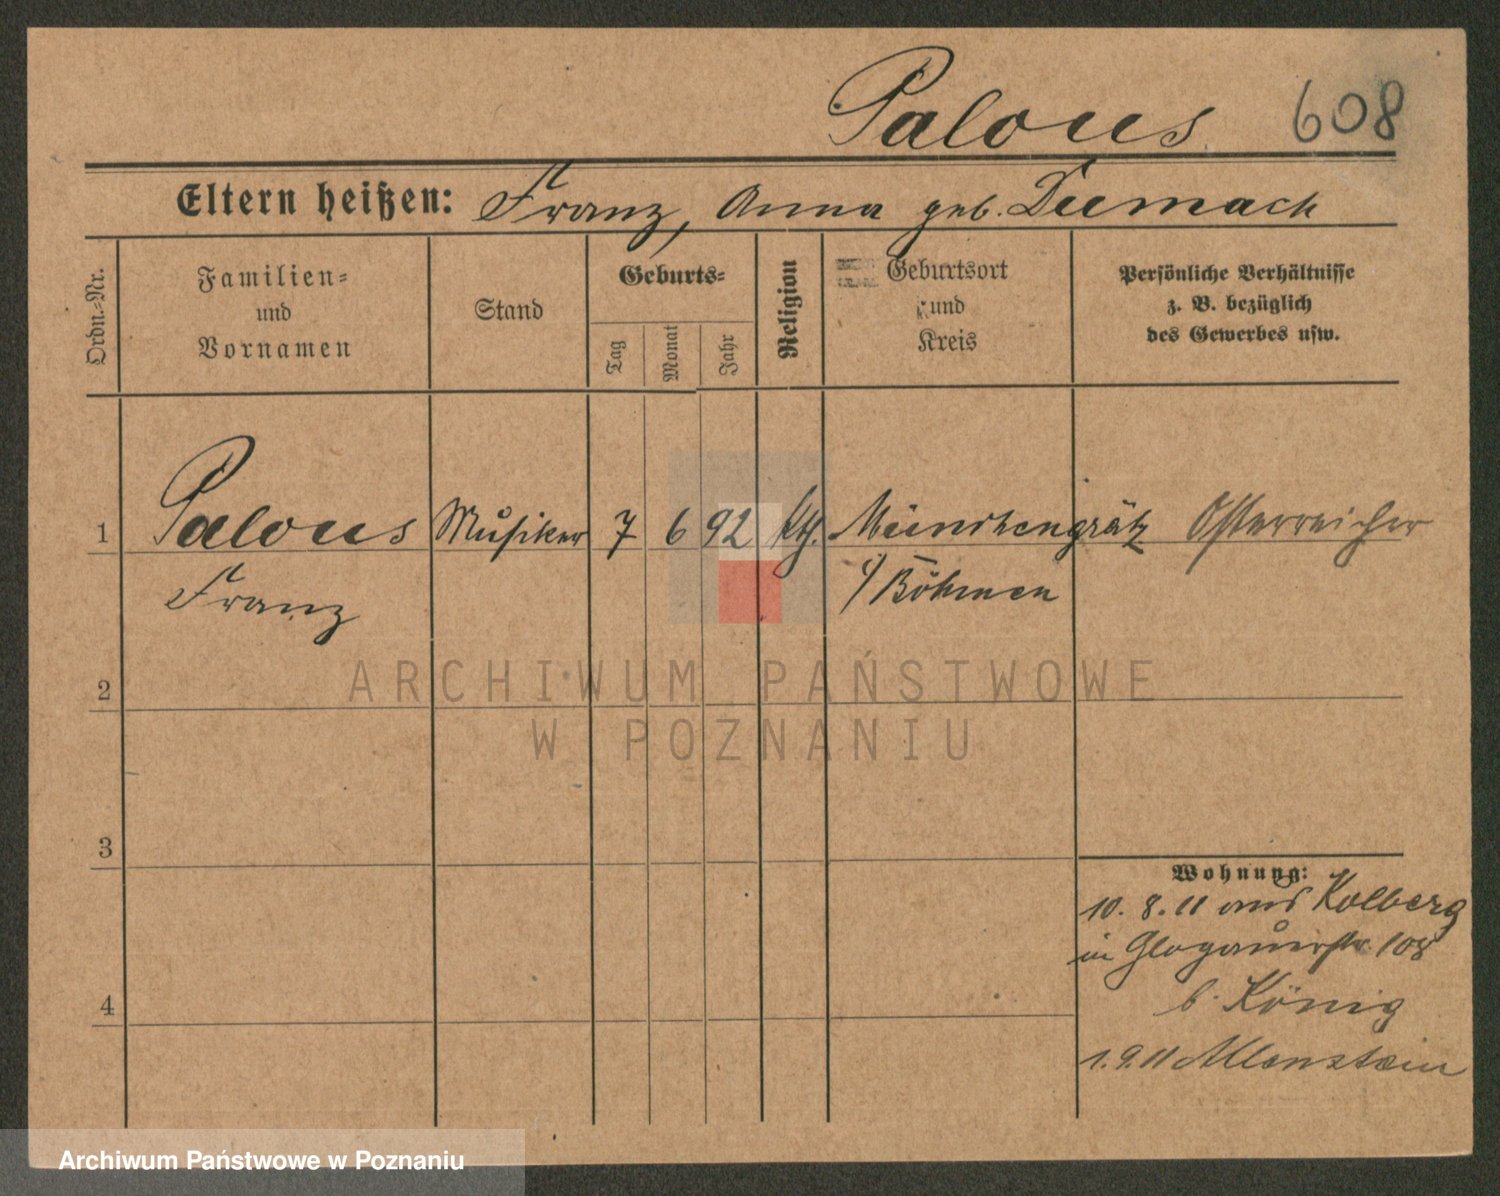 Palous 608
Eltern heißen: Franz, Anna geb.
Ordn.-Nr.
Familien-
und
Vornamen
Stand
Geburts-
Tag
Monat
Jahr
Religion
Geburtsort
und
Kreis
Persönliche Verhältnisse
z. B. bezüglich
des Gewerbes usw.
1 Palous Musiker 7 6 92 kth. Münchengrätz Österreicher
Franz i/ Böhmen
ARCHIWUM PAŃSTWOWE
W POZNANIU
2
3
4
Wohnung:
10. 8. 11 aus Kolberg
in Glogauerstr. 108
b. König
1. 9. 11 Allenstein
Archiwum Państwowe w Poznaniu